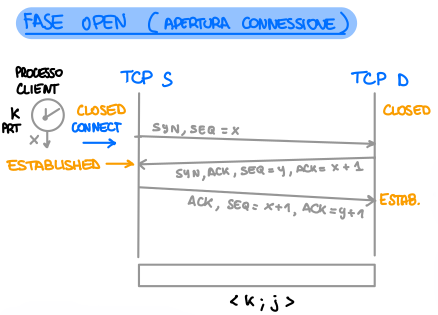 FASE OPEN (APERTURA CONNESSIONE)
PROCESSO
CLIENT
TCP S
TCP D
K
PRT
X
CLOSED
CONNECT
CLOSED
SYN, SEQ = X
ESTABLISHED
SYN, ACK, SEQ = y, ACK = X+1
ACK, SEQ = X+1, ACK = y+1
ESTAB.
< K ; j >